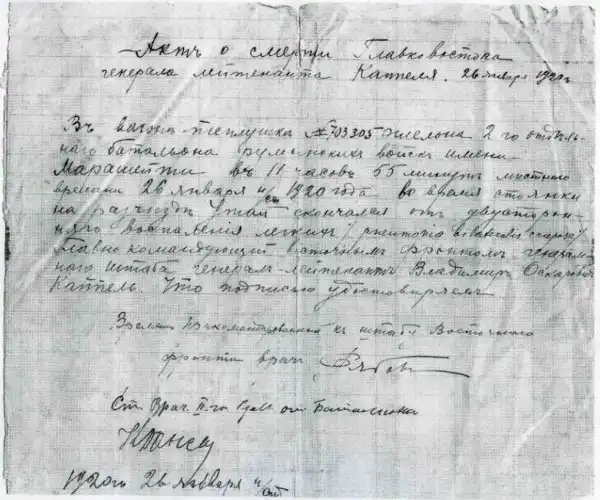 Актъ о смерти Главковостока
генерала лейтенанта Каппеля. 26 января 1920 г.
Въ вагонѣ-теплушкѣ № 703305 эшелона 2-го отдѣль-
наго батальона румынскихъ войскъ имени
Марашети въ 11 часовъ 55 минутъ мѣстнаго
времени 26 января н/ст 1920 года во время стоянки
на разъѣздѣ Утай скончался отъ двусторон-
няго воспаления легкихъ
Главнокомандующий восточнымъ фронтомъ генераль-
наго штаба генералъ-лейтенантъ Владимиръ Оскаровичъ
Каппель. Что подписью удостовѣряемъ
къ штабу Восточнаго
фронта врачъ
Ст. Врач Батальона
1920го 26 января н/ст